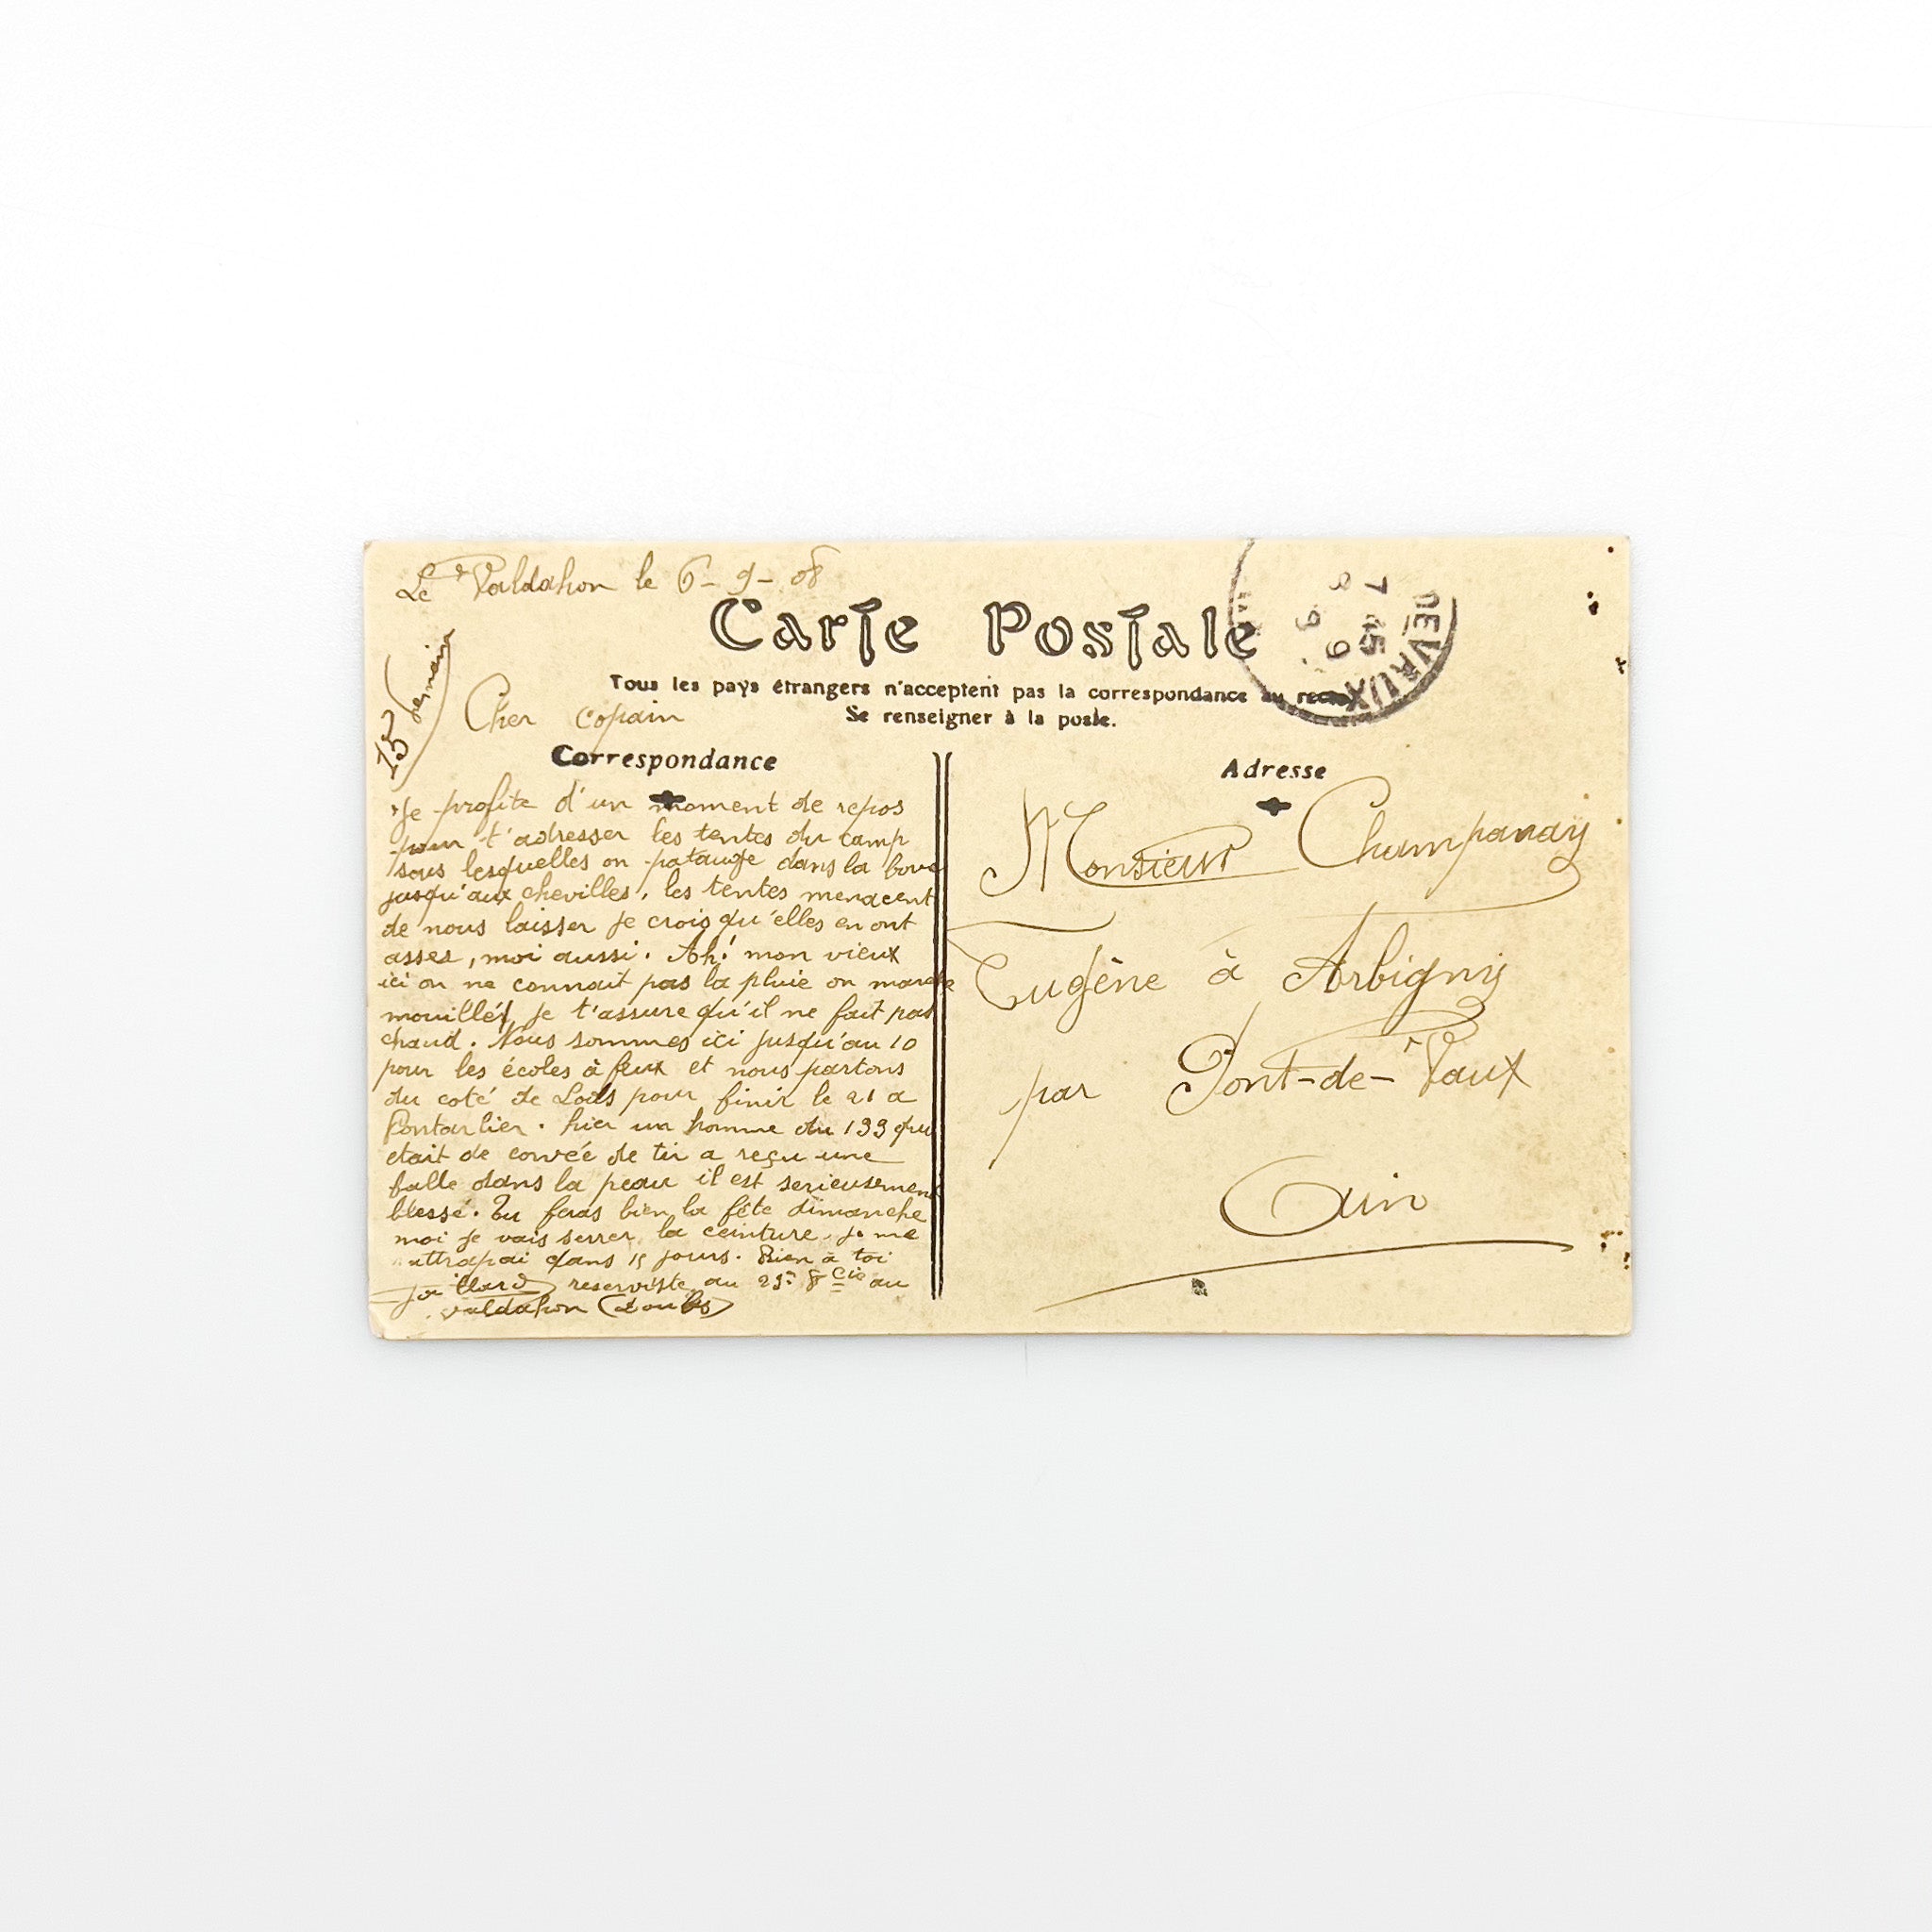 Le Valdahon le 6-9-08
Carte Postale
Tous les pays étrangers n'acceptent pas la correspondance au recto
Se renseigner à la poste.
DEVAUX
7 45
9 9
Cher copain
Correspondance
Je profite d'un moment de repos
pour t'adresser les tentes du camp
sous lesquelles on patauge dans la boue
jusqu'aux chevilles, les tentes menacent
de nous laisser je crois qu'elles en ont
asses, moi aussi. Ah! mon vieux
ici on ne connait pas la pluie on marche
mouillés, je t'assure qu'il ne fait pas
chaud. Nous sommes ici jusqu'au 10
pour les écoles à feux et nous partons
du coté de pour finir le 21 a
Pontarlier. hier un homme du 133 qui
etait de corvée de tir a reçu une
balle dans la peau il est serieusement
blessé. Tu feras bien la fête dimanche
moi je vais serrer la ceinture. je me
dans 15 jours. Bien à toi
reserviste au 23e 8 Cie au
valdahon (Doubs)
Adresse
Monsieur Champanay
Eugêne à Arbigny
par Pont-de-Vaux
Ain